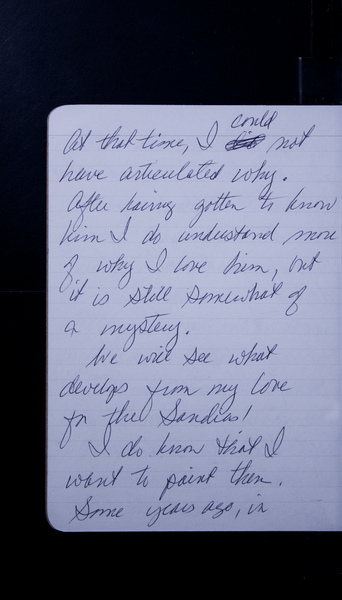 could
At that time, I did not
have articulated why.
After having gotten to know
him I do understand more
of why I love him, but
it is still somewhat of
a mystery.
We will see what
develops from my love
for the Sandias!
I do know that I
want to paint them.
Some years ago, in